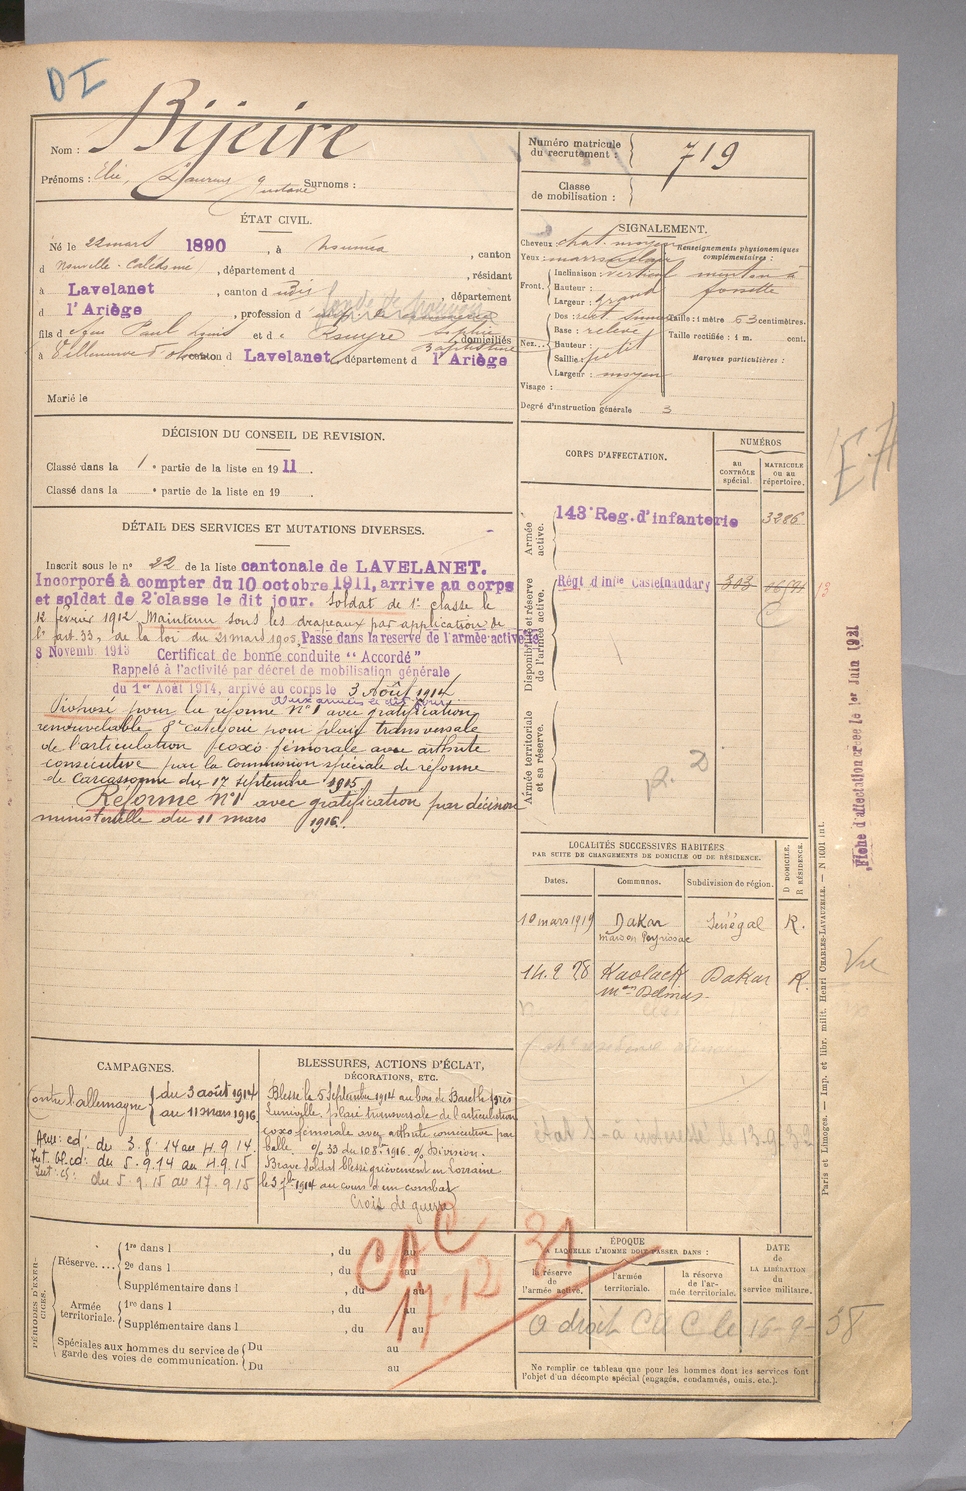 DI
Nom : Bijeire
Prénoms : Elie, Laurent Gustave Surnoms :
Numéro matricule du recrutement : 719
Classe de mobilisation :
ÉTAT CIVIL.
Né le 22 mars 1890, à Nouméa, canton
d Nouvelle-Calédonie, département d , résidant
à Lavelanet, canton d udis, département
d l'Ariège, profession d
fils d feu Paul Louis et d e Rouyre Sophie Baptistine domiciliés
à Villeneuve d'Olmes canton d Lavelanet, département d l'Ariège
Marié le
SIGNALEMENT.
Cheveux : chat. moyen
Yeux : marrs clair
Front. Inclinaison : vertical
Hauteur :
Largeur : grand
Nez... Dos : rect. sinueux
Base : relevé
Hauteur :
Saillie : petit
Largeur : moyen
Visage :
Renseignements physionomiques complémentaires :
menton à
fossette
Taille : 1 mètre 63 centimètres.
Taille rectifiée : 1 m. cent.
Marques particulières :
Degré d'instruction générale 3
DÉCISION DU CONSEIL DE REVISION.
Classé dans la 1e partie de la liste en 1911.
Classé dans la e partie de la liste en 19 .
DÉTAIL DES SERVICES ET MUTATIONS DIVERSES.
Inscrit sous le n° 22 de la liste cantonale de LAVELANET.
Incorporé à compter du 10 octobre 1911, arrive au corps
et soldat de 2e classe le dit jour. Soldat de 1e classe le
12 février 1912 Maintenu sous les drapeaux par application de
l'art. 33, de la loi du 21 mars 1905, Passe dans la reserve de l'armée active le
8 Novemb. 1913 Certificat de bonne conduite "Accordé"
Rappelé à l'activité par décret de mobilisation générale
du 1er Août 1914, arrivé au corps le 3 Août 1914
aux armées le dit jour
Proposé pour la réforme N°1 avec gratification
renouvelable 8e catégorie pour plaie transversale
de l'articulation coxo fémorale avec arthrite
consécutive par la Commission spéciale de réforme
de Carcassonne du 17 septembre 1915.
Réformé N°1 avec gratification par décision
ministérielle du 11 mars 1916.
CORPS D'AFFECTATION.
NUMÉROS
AU CONTRÔLE spécial.
MATRICULE ou au répertoire.
Armée active.
143e Reg. d'infanterie 3286
Disponibilité et réserve de l'armée active.
Régt d'infie Castelnaudary 303
13
Armée territoriale et sa réserve.
R. 2
E.A
Fiche d'affectation créée le 1er Juin 1921
LOCALITÉS SUCCESSIVES HABITÉES
PAR SUITE DE CHANGEMENTS DE DOMICILE OU DE RÉSIDENCE.
Dates. Communes. Subdivision de région. D DOMICILE. R RÉSIDENCE.
10 mars 1919 Dakar maison Peyrissac Sénégal R.
14.9.28 Kaolack mon Delmas Dakar R.
Vu
CAMPAGNES.
Contre l'allemagne du 3 août 1914
au 11 mars 1916
Armé: cd: de 3.8.14 au 4.9.14.
Int. bl. cd: du 5.9.14 au 4.9.15
Int: cs: du 5.9.15 au 17.9.15
BLESSURES, ACTIONS D'ÉCLAT,
DÉCORATIONS, ETC.
Blessé le 5 Septembre 1914 au bois de Bareth près
Lunéville, plaie transversale de l'articulation
coxo fémorale avec arthrite consécutive par
balle. O/ 33 du 10 8bre 1916. O/ Division.
Brave Soldat blessé grièvement en Lorraine
le 3 7bre 1914 au cours d'un combat
Croix de guerre
PÉRIODES D'EXERCICES.
Réserve.... 1re dans l , du au
2e dans l , du au
Supplémentaire dans l , du au
Armée territoriale. 1re dans l , du au
Supplémentaire dans l , du au
Spéciales aux hommes du service de garde des voies de communication. Du au
Du au
CAC 31
17-12
ÉPOQUE
A LAQUELLE L'HOMME DOIT PASSER DANS :
la réserve de l'armée active.
l'armée territoriale.
la réserve de l'armée territoriale.
DATE de LA LIBÉRATION du service militaire.
a droit CU C le 16-9-38
Ne remplir ce tableau que pour les hommes dont les services font
l'objet d'un décompte spécial (engagés, condamnés, omis, etc.).
Paris et Limoges. — Imp. et libr. milit. Henri CHARLES-LAVAUZELLE. — N 1601 int.